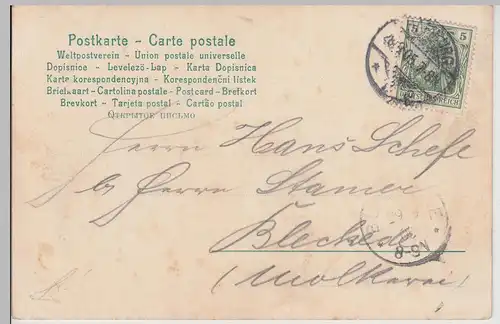 Postkarte - Carte postale
Weltpostverein - Union postale universelle
Dopisnice - Levelező-Lap - Karta Dopisnica
Karte korespondencyjna - Korespondenční lístek
Briefkaart - Cartolina postale - Postcard - Brefkort
Brevkort - Tarjeta postal - Cartão postal
Открытое письмо
5 5
REICH
Herrn Hans Schefe
by Herrn Stamer
Bleckede
8-9N
(Molkerei)